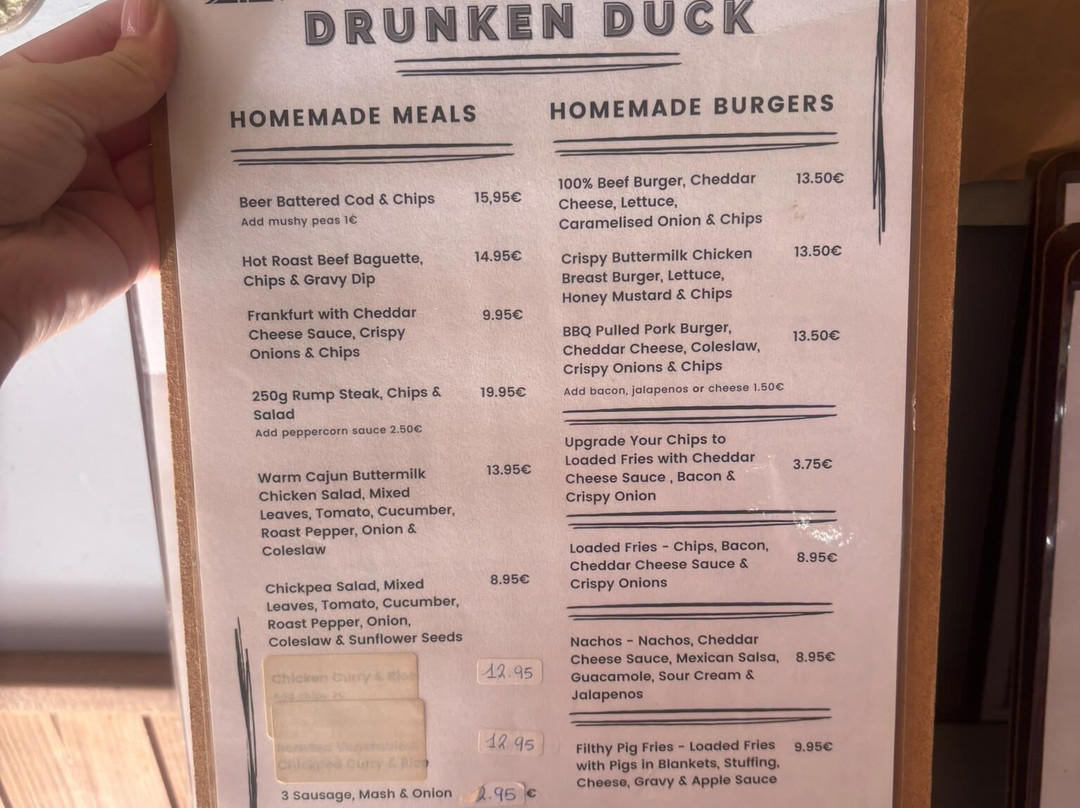 DRUNKEN DUCK
HOMEMADE MEALS
Beer Battered Cod & Chips 15,95€
Add mushy peas 1€
Hot Roast Beef Baguette, 14.95€
Chips & Gravy Dip
Frankfurt with Cheddar 9.95€
Cheese Sauce, Crispy
Onions & Chips
250g Rump Steak, Chips & 19.95€
Salad
Add peppercorn sauce 2.50€
Warm Cajun Buttermilk 13.95€
Chicken Salad, Mixed
Leaves, Tomato, Cucumber,
Roast Pepper, Onion &
Coleslaw
Chickpea Salad, Mixed 8.95€
Leaves, Tomato, Cucumber,
Roast Pepper, Onion,
Coleslaw & Sunflower Seeds
Chicken Curry & Rice 12.95
12.95
Chickpea Curry & Rice
3 Sausage, Mash & Onion 2.95 €
HOMEMADE BURGERS
100% Beef Burger, Cheddar 13.50€
Cheese, Lettuce,
Caramelised Onion & Chips
Crispy Buttermilk Chicken 13.50€
Breast Burger, Lettuce,
Honey Mustard & Chips
BBQ Pulled Pork Burger, 13.50€
Cheddar Cheese, Coleslaw,
Crispy Onions & Chips
Add bacon, jalapenos or cheese 1.50€
Upgrade Your Chips to
Loaded Fries with Cheddar 3.75€
Cheese Sauce , Bacon &
Crispy Onion
Loaded Fries - Chips, Bacon, 8.95€
Cheddar Cheese Sauce &
Crispy Onions
Nachos - Nachos, Cheddar
Cheese Sauce, Mexican Salsa, 8.95€
Guacamole, Sour Cream &
Jalapenos
Filthy Pig Fries - Loaded Fries 9.95€
with Pigs in Blankets, Stuffing,
Cheese, Gravy & Apple Sauce